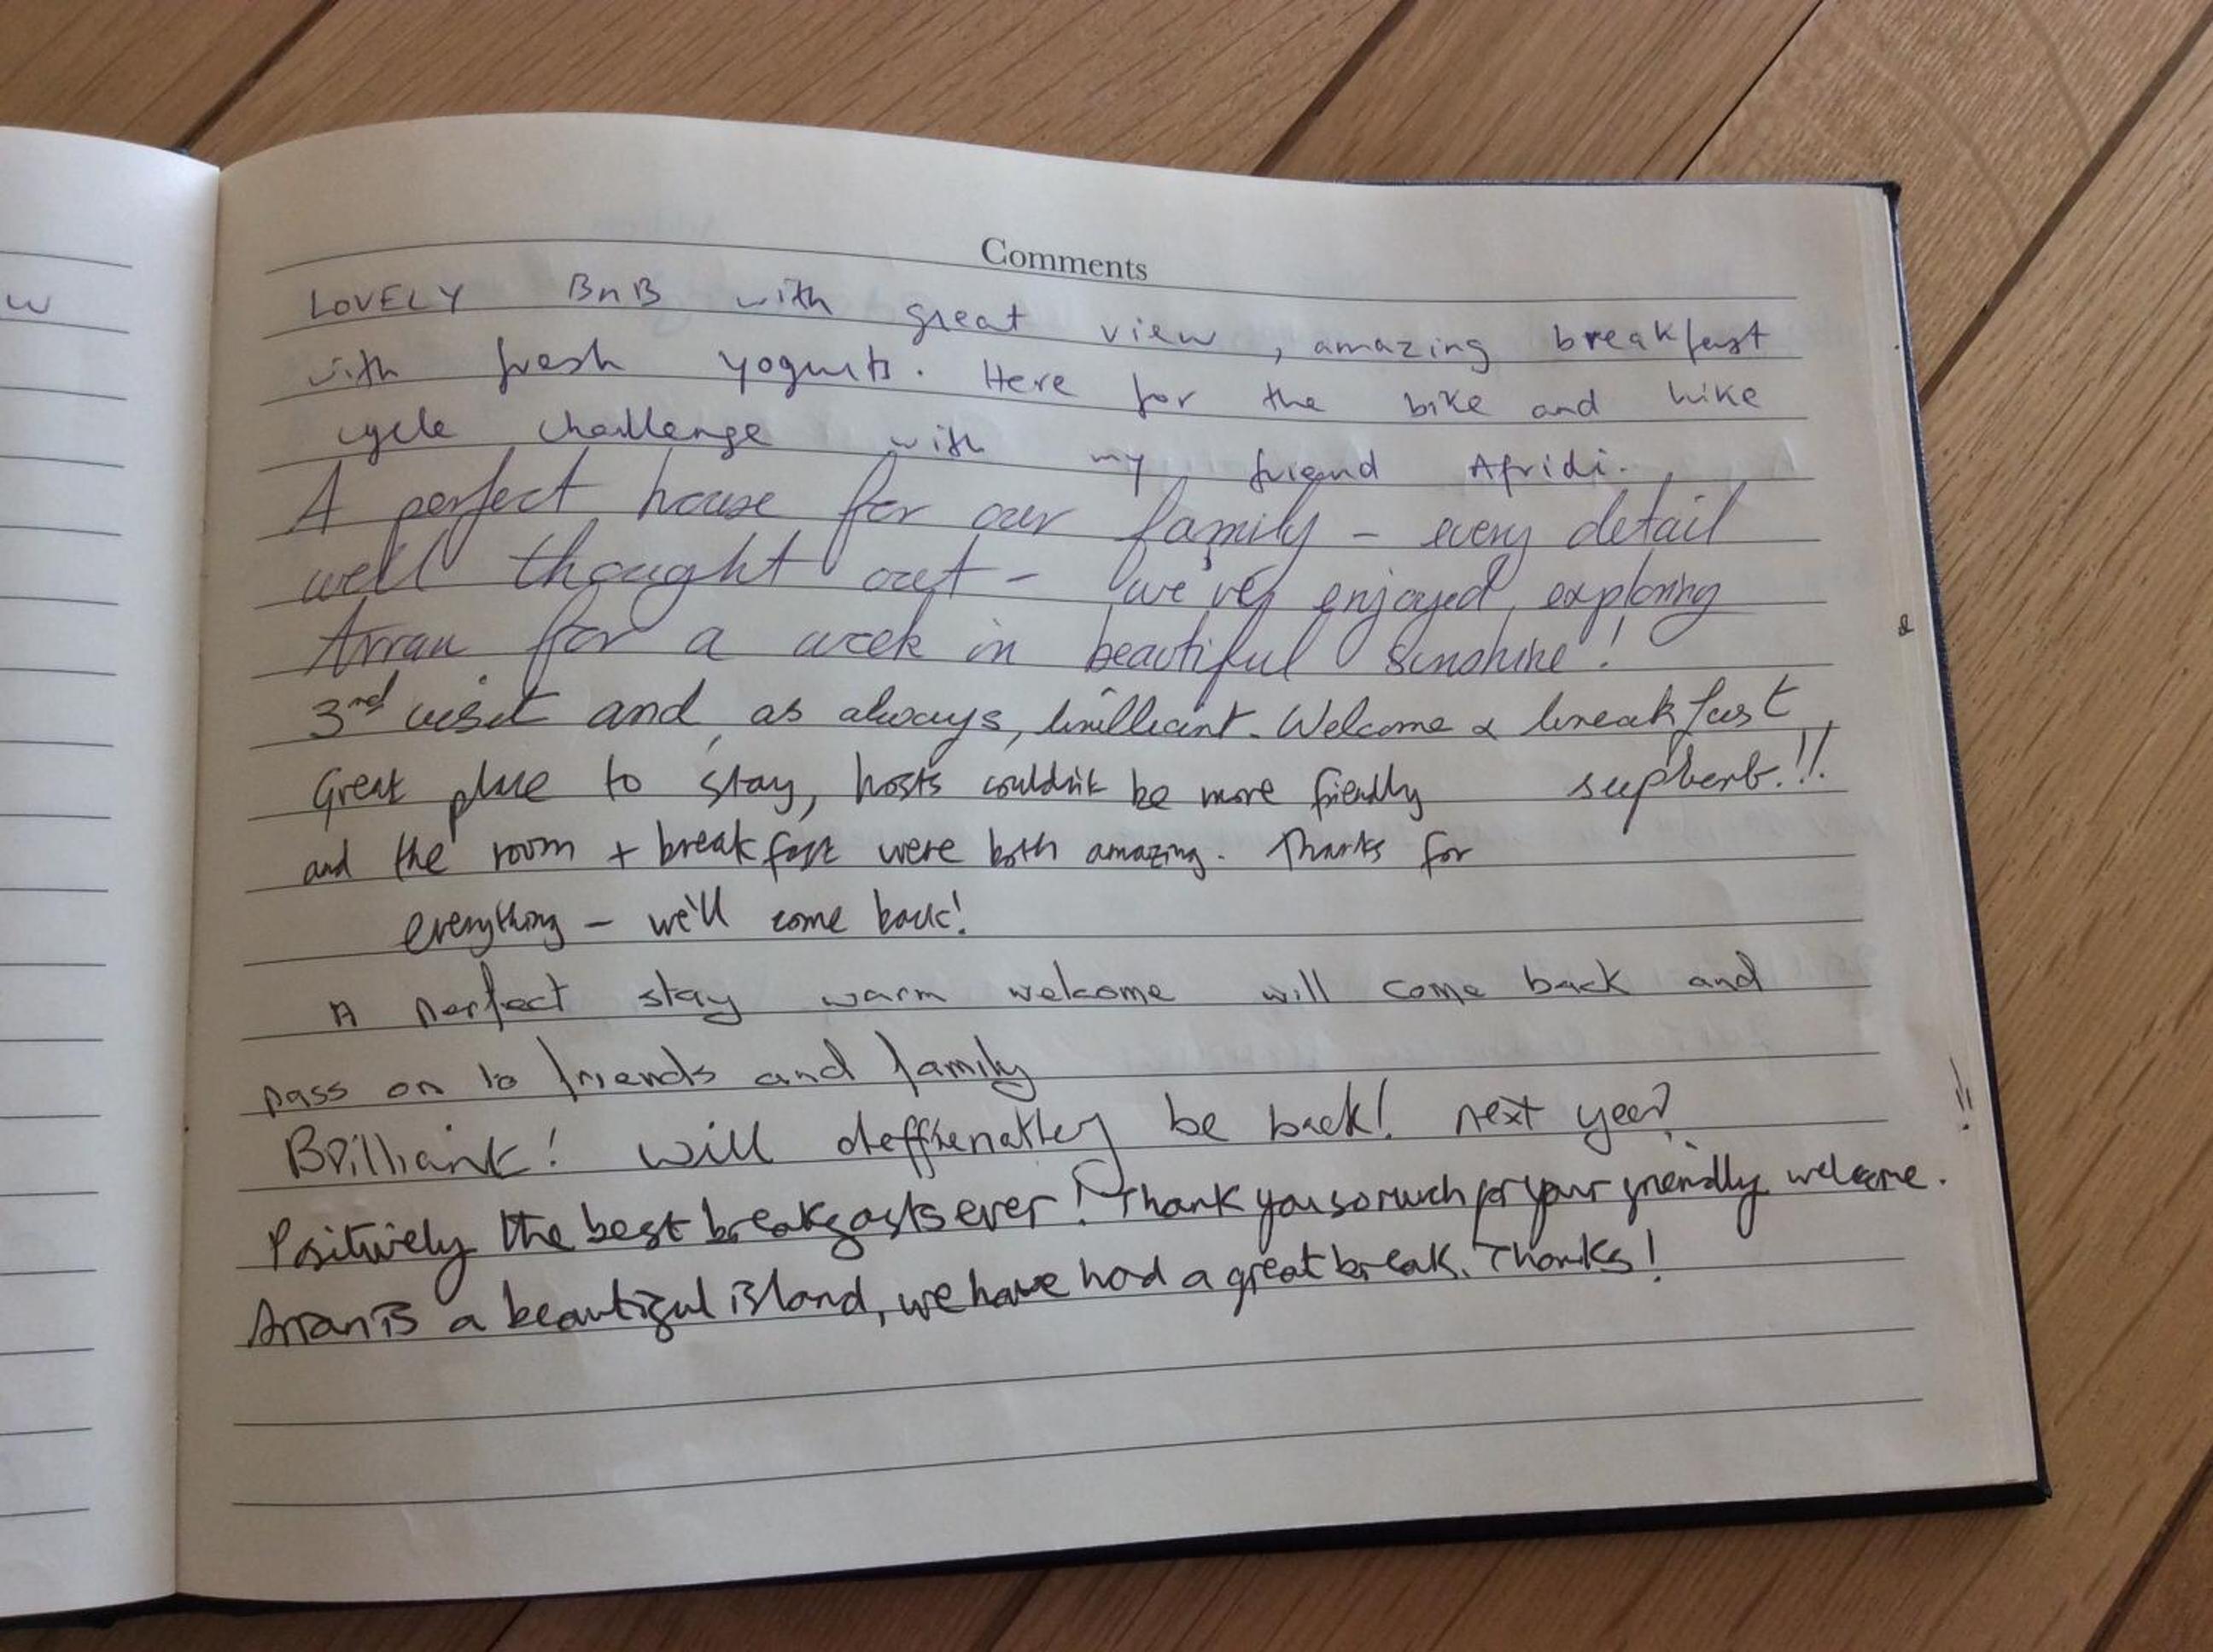 Comments
w
LOVELY BnB with great view, amazing breakfast
with fresh yogurts. Here for the bike and hike
cycle challenge with my friend Afridi.
A perfect house for our family - every detail
well thought out - we've enjoyed exploring
Arran for a week in beautiful sunshine!
3nd visit and, as always, brilliant. Welcome & breakfast
supberb.!!
Great place to stay, hosts couldn't be more friendly
and the room + breakfast were both amazing. Thanks for
everything - we'll come back!
A perfect stay warm welcome will come back and
pass on to friends and family
Brilliant! will deffienatley be back! next year?
Positively the best breakfasts ever! Thank you so much for your friendly welcome.
Arran is a beautiful island, we have had a great break. Thanks!
!!